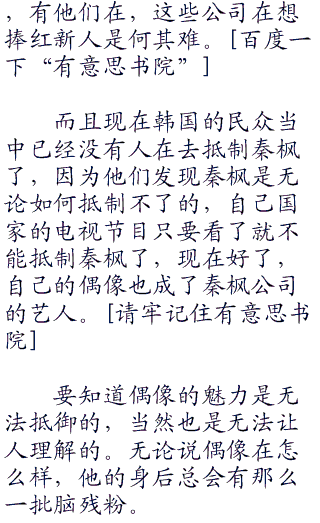 ，有他们在，这些公司在想
捧红新人是何其难。[百度一
下“有意思书院”]
而且现在韩国的民众当
中已经没有人在去抵制秦枫
了，因为他们发现秦枫是无
论如何抵制不了的，自己国
家的电视节目只要看了就不
能抵制秦枫了，现在好了，
自己的偶像也成了秦枫公司
的艺人。[请牢记住有意思书
院]
要知道偶像的魅力是无
法抵御的，当然也是无法让
人理解的。无论说偶像在怎
么样，他的身后总会有那么
一批脑残粉。